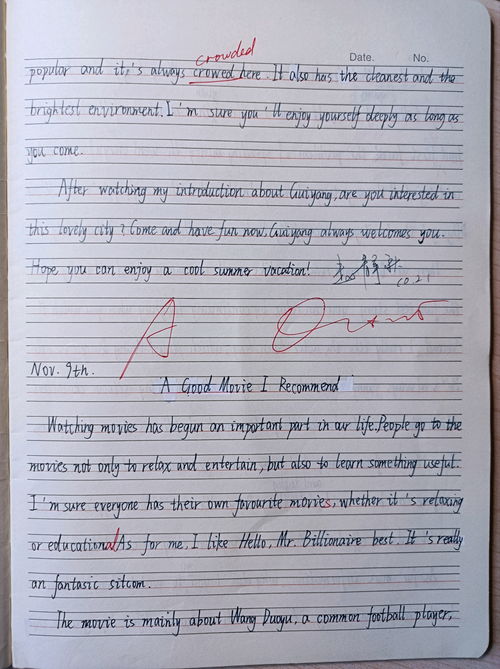 crowded
Date. No.
popular and it's always crowed here. It also has the cleanest and the
brightest environment. I'm sure you'll enjoy yourself deeply as long as
you come.
After watching my introduction about Guiyang, are you interested in
this lovely city? Come and have fun now. Guiyang always welcomes you.
Hope you can enjoy a cool summer vacation!
A
Nov. 9th.
A Good Movie I Recommend
Watching movies has begun an important part in our life. People go to the
movies not only to relax and entertain, but also to learn something useful.
I'm sure everyone has their own favourite movies, whether it's relaxing
or educational. As for me, I like Hello, Mr. Billionaire best. It's really
an fantasic sitcom.
The movie is mainly about Wang Duoyu, a common football player,